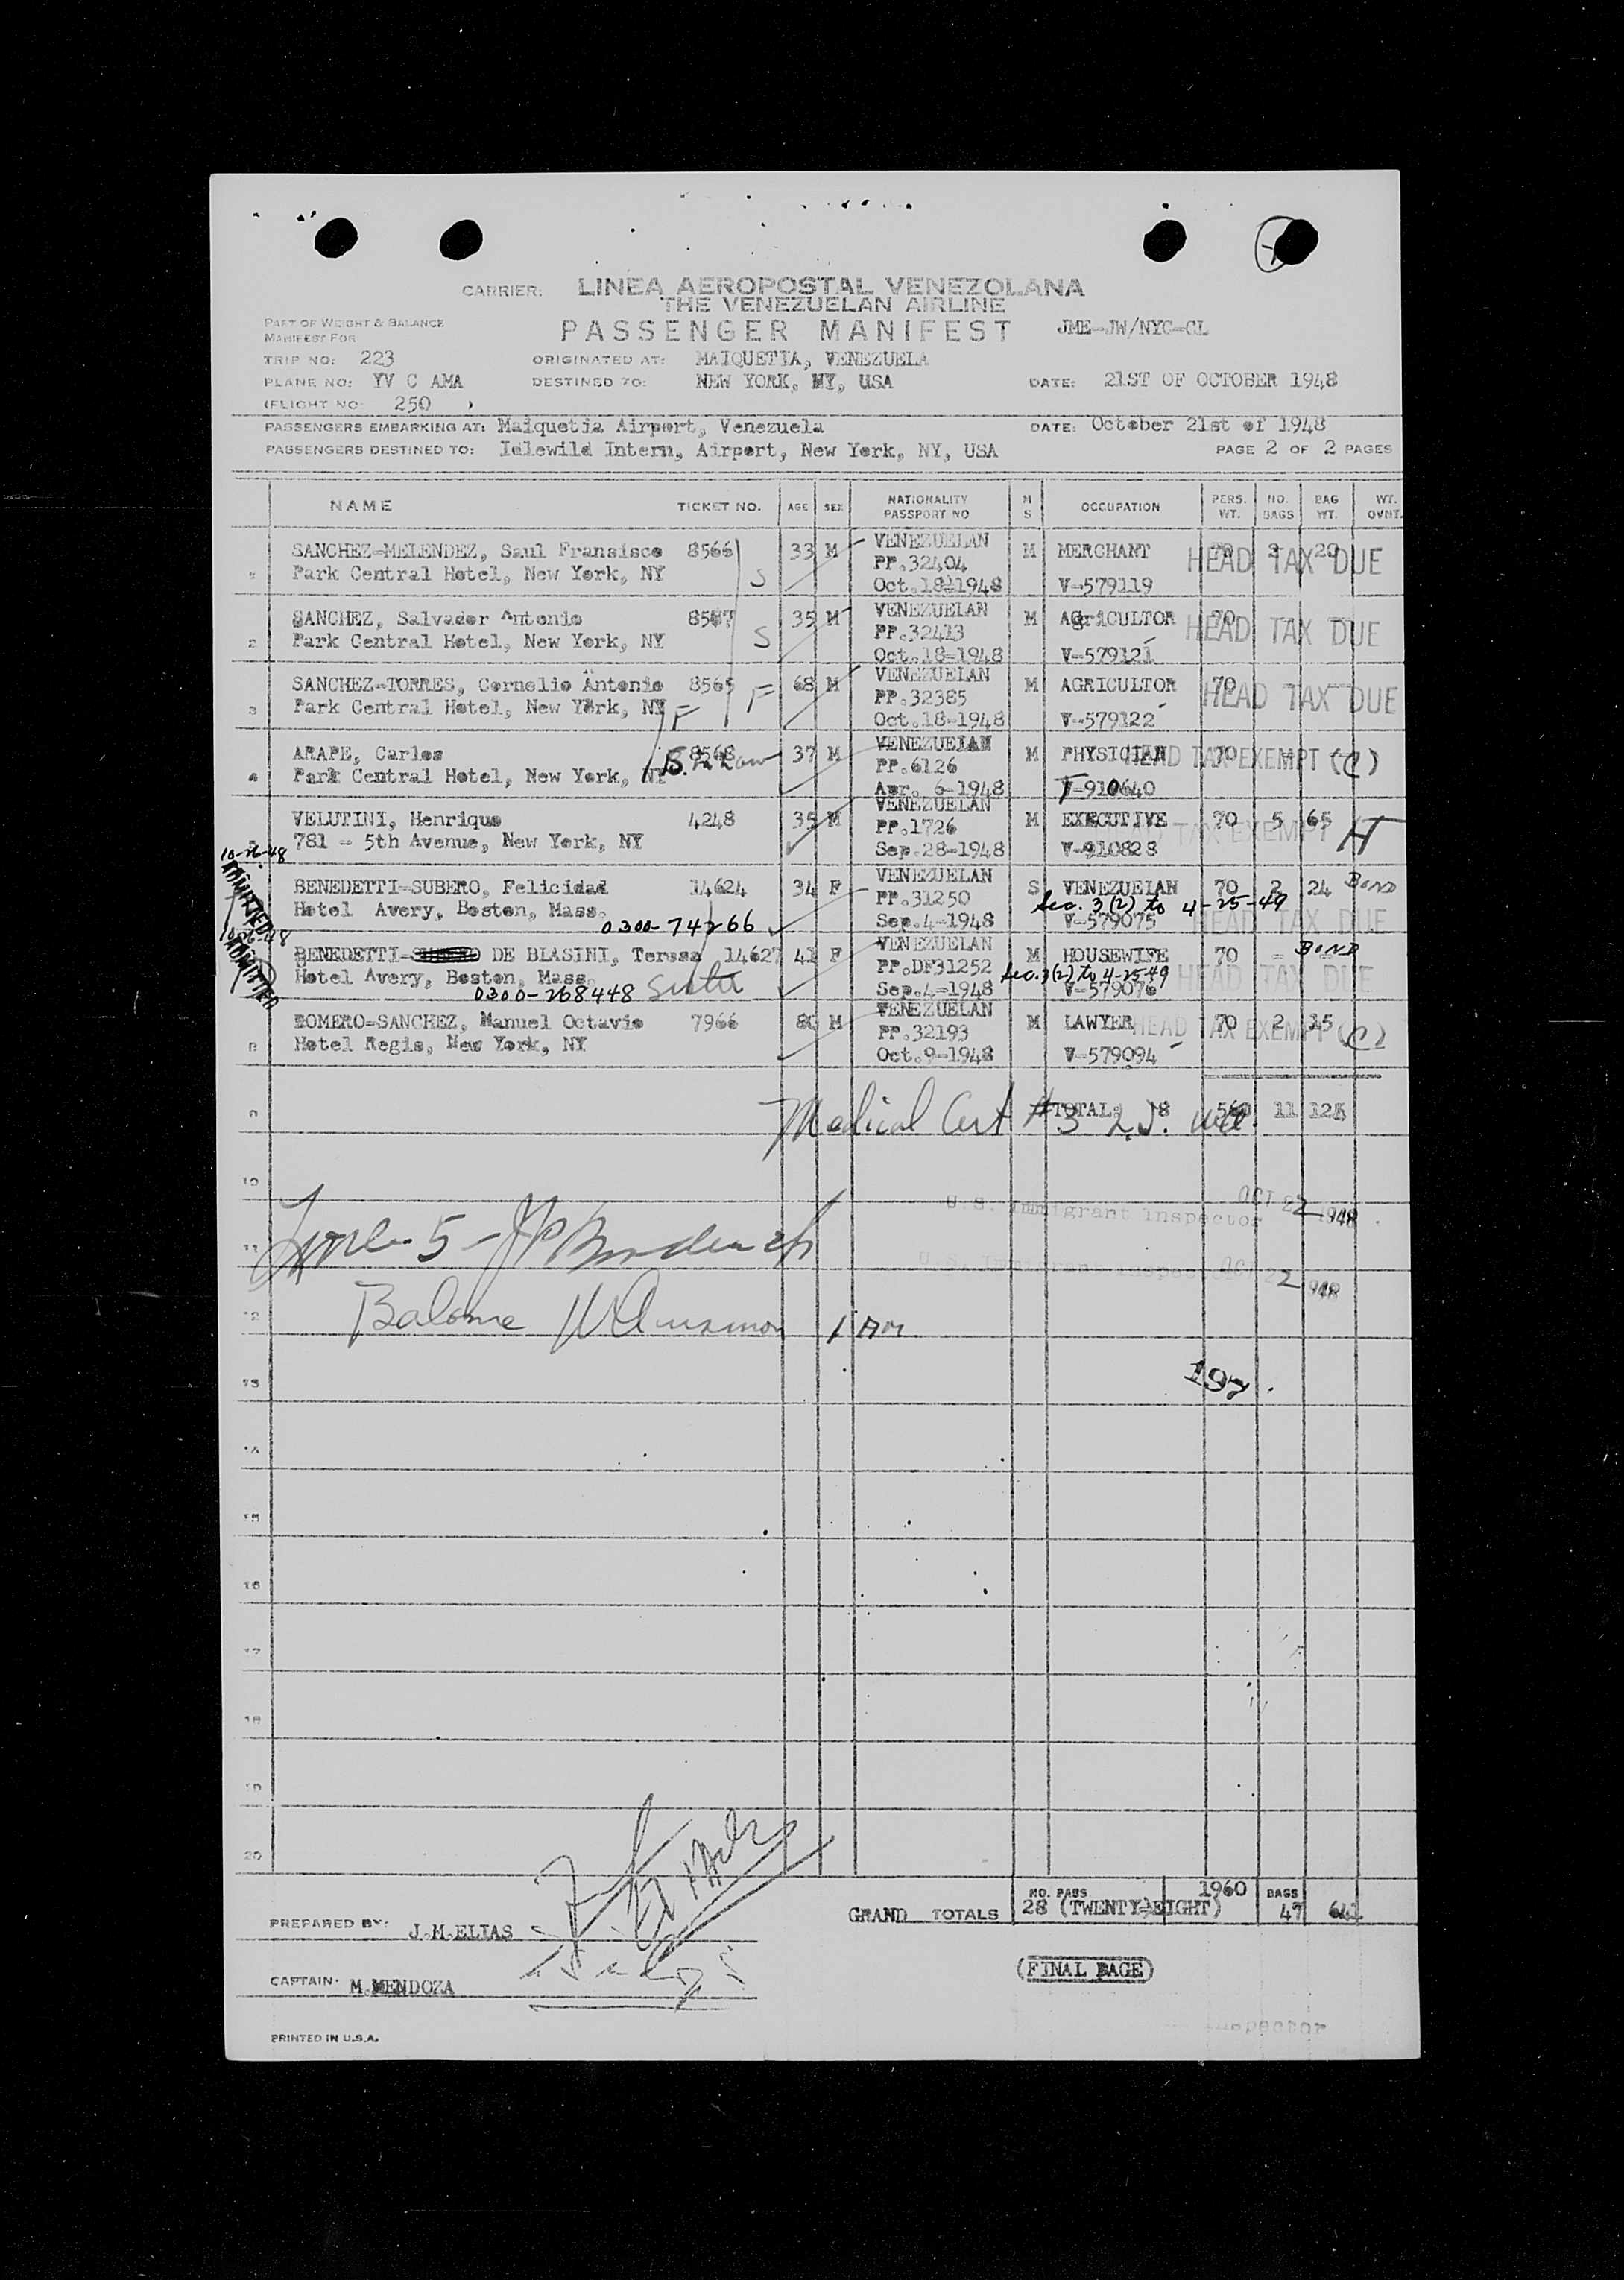 CARRIER: LINEA AEROPOSTAL VENEZOLANA
THE VENEZUELAN AIRLINE
PART OF WEIGHT & BALANCE
MANIFEST FOR
PASSENGER MANIFEST JME-JW/NYC-CL
TRIP NO: 223 ORIGINATED AT: MAIQUETIA, VENEZUELA
PLANE NO: YV C AMA DESTINED TO: NEW YORK, NY, USA DATE: 21ST OF OCTOBER 1948
(FLIGHT NO: 250 )
PASSENGERS EMBARKING AT: Maiquetia Airport, Venezuela DATE: October 21st of 1948
PASSENGERS DESTINED TO: Idlewild Intern, Airport, New York, NY, USA PAGE 2 OF 2 PAGES
NAME TICKET NO. AGE SEX NATIONALITY PASSPORT NO M S OCCUPATION PERS. WT. NO. BAGS BAG WT. WT. OVNT.
SANCHEZ-MELENDEZ, Saul Fransisco 8566 33 M VENEZUELAN M MERCHANT HEAD TAX DUE
Park Central Hotel, New York, NY S PP.32404
Oct.18-1948 V-579119
SANCHEZ, Salvador Antonio 8567 35 M VENEZUELAN M AGriCULTOR 70 HEAD TAX DUE
2 Park Central Hotel, New York, NY S PP.32413
Oct.18-1948 V-579121
SANCHEZ-TORRES, Cornelio Antonio 8565 68 M VENEZUELAN M AGRICULTOR 70 HEAD TAX DUE
3 Park Central Hotel, New York, NY F F PP.32385
Oct.18-1948 V-579122
ARAPE, Carlos 8568 37 M VENEZUELAN M PHYSICIAN 70 HEAD TAX EXEMPT (C)
4 Park Central Hotel, New York, NY B. in Law PP.6126
Apr. 6-1948 T-910640
VELUTINI, Henrique 4248 35 M VENEZUELAN M EXECUTIVE 70 5 65 HEAD TAX EXEMPT H
781 - 5th Avenue, New York, NY PP.1726
Sep.28-1948 V-910828
10-26-48 ADMITTED
BENEDETTI-SUBERO, Felicidad 14624 34 F VENEZUELAN S VENEZUELAN 70 2 24 BOND
Hotel Avery, Boston, Mass. PP.31250 Sec. 3(2) to 4-25-49
0300-74266 Sep.4-1948 V-579075 HEAD TAX DUE
10-26-48 ADMITTED
BENEDETTI- DE BLASINI, Teresa 14627 41 F VENEZUELAN M HOUSEWIFE 70 - BOND
Hotel Avery, Boston, Mass. PP.DF31252 Sec.3(2) to 4-25-49 HEAD TAX DUE
0300-268448 Sister Sep.4-1948 V-579076
ROMERO-SANCHEZ, Manuel Octavio 7966 80 M VENEZUELAN M LAWYER 70 2 15 HEAD TAX EXEMPT (C)
8 Hotel Regis, New York, NY PP.32193
Oct.9-1948 V-579094
9 TOTAL: 8 560 11 125
Medical Cert #3
10
U.S. Immigrant Inspector OCT 22 1948
11
U.S. Immigrant Inspector OCT 22 1948
12
1 Am
197
13
14
15
16
17
18
19
20
GRAND TOTALS NO. PASS 28 (TWENTY-EIGHT) 1960 BAGS 47 641
PREPARED BY: J.M.ELIAS
CAPTAIN: M.MENDOZA
(FINAL PAGE)
PRINTED IN U.S.A.
Inspector